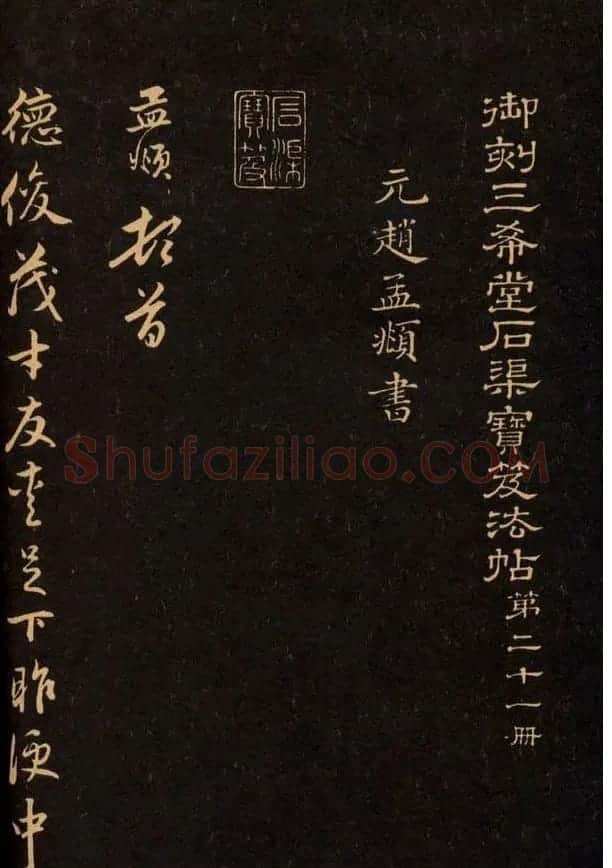 御刻三希堂石渠寶笈法帖第二十一册
元趙孟頫書
石渠寶笈
孟頫頓首
德俊茂才友爱足下昨便中
Shufaziliao.COM